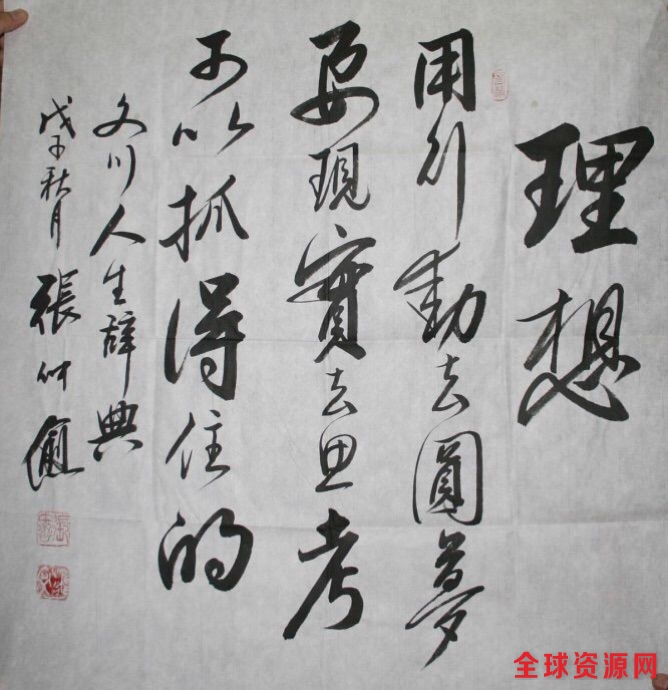 理想
用行動去圓夢
要現實去思考
可以抓得住的
文川人生辭典
戊子秋月 張仲
全球资源网